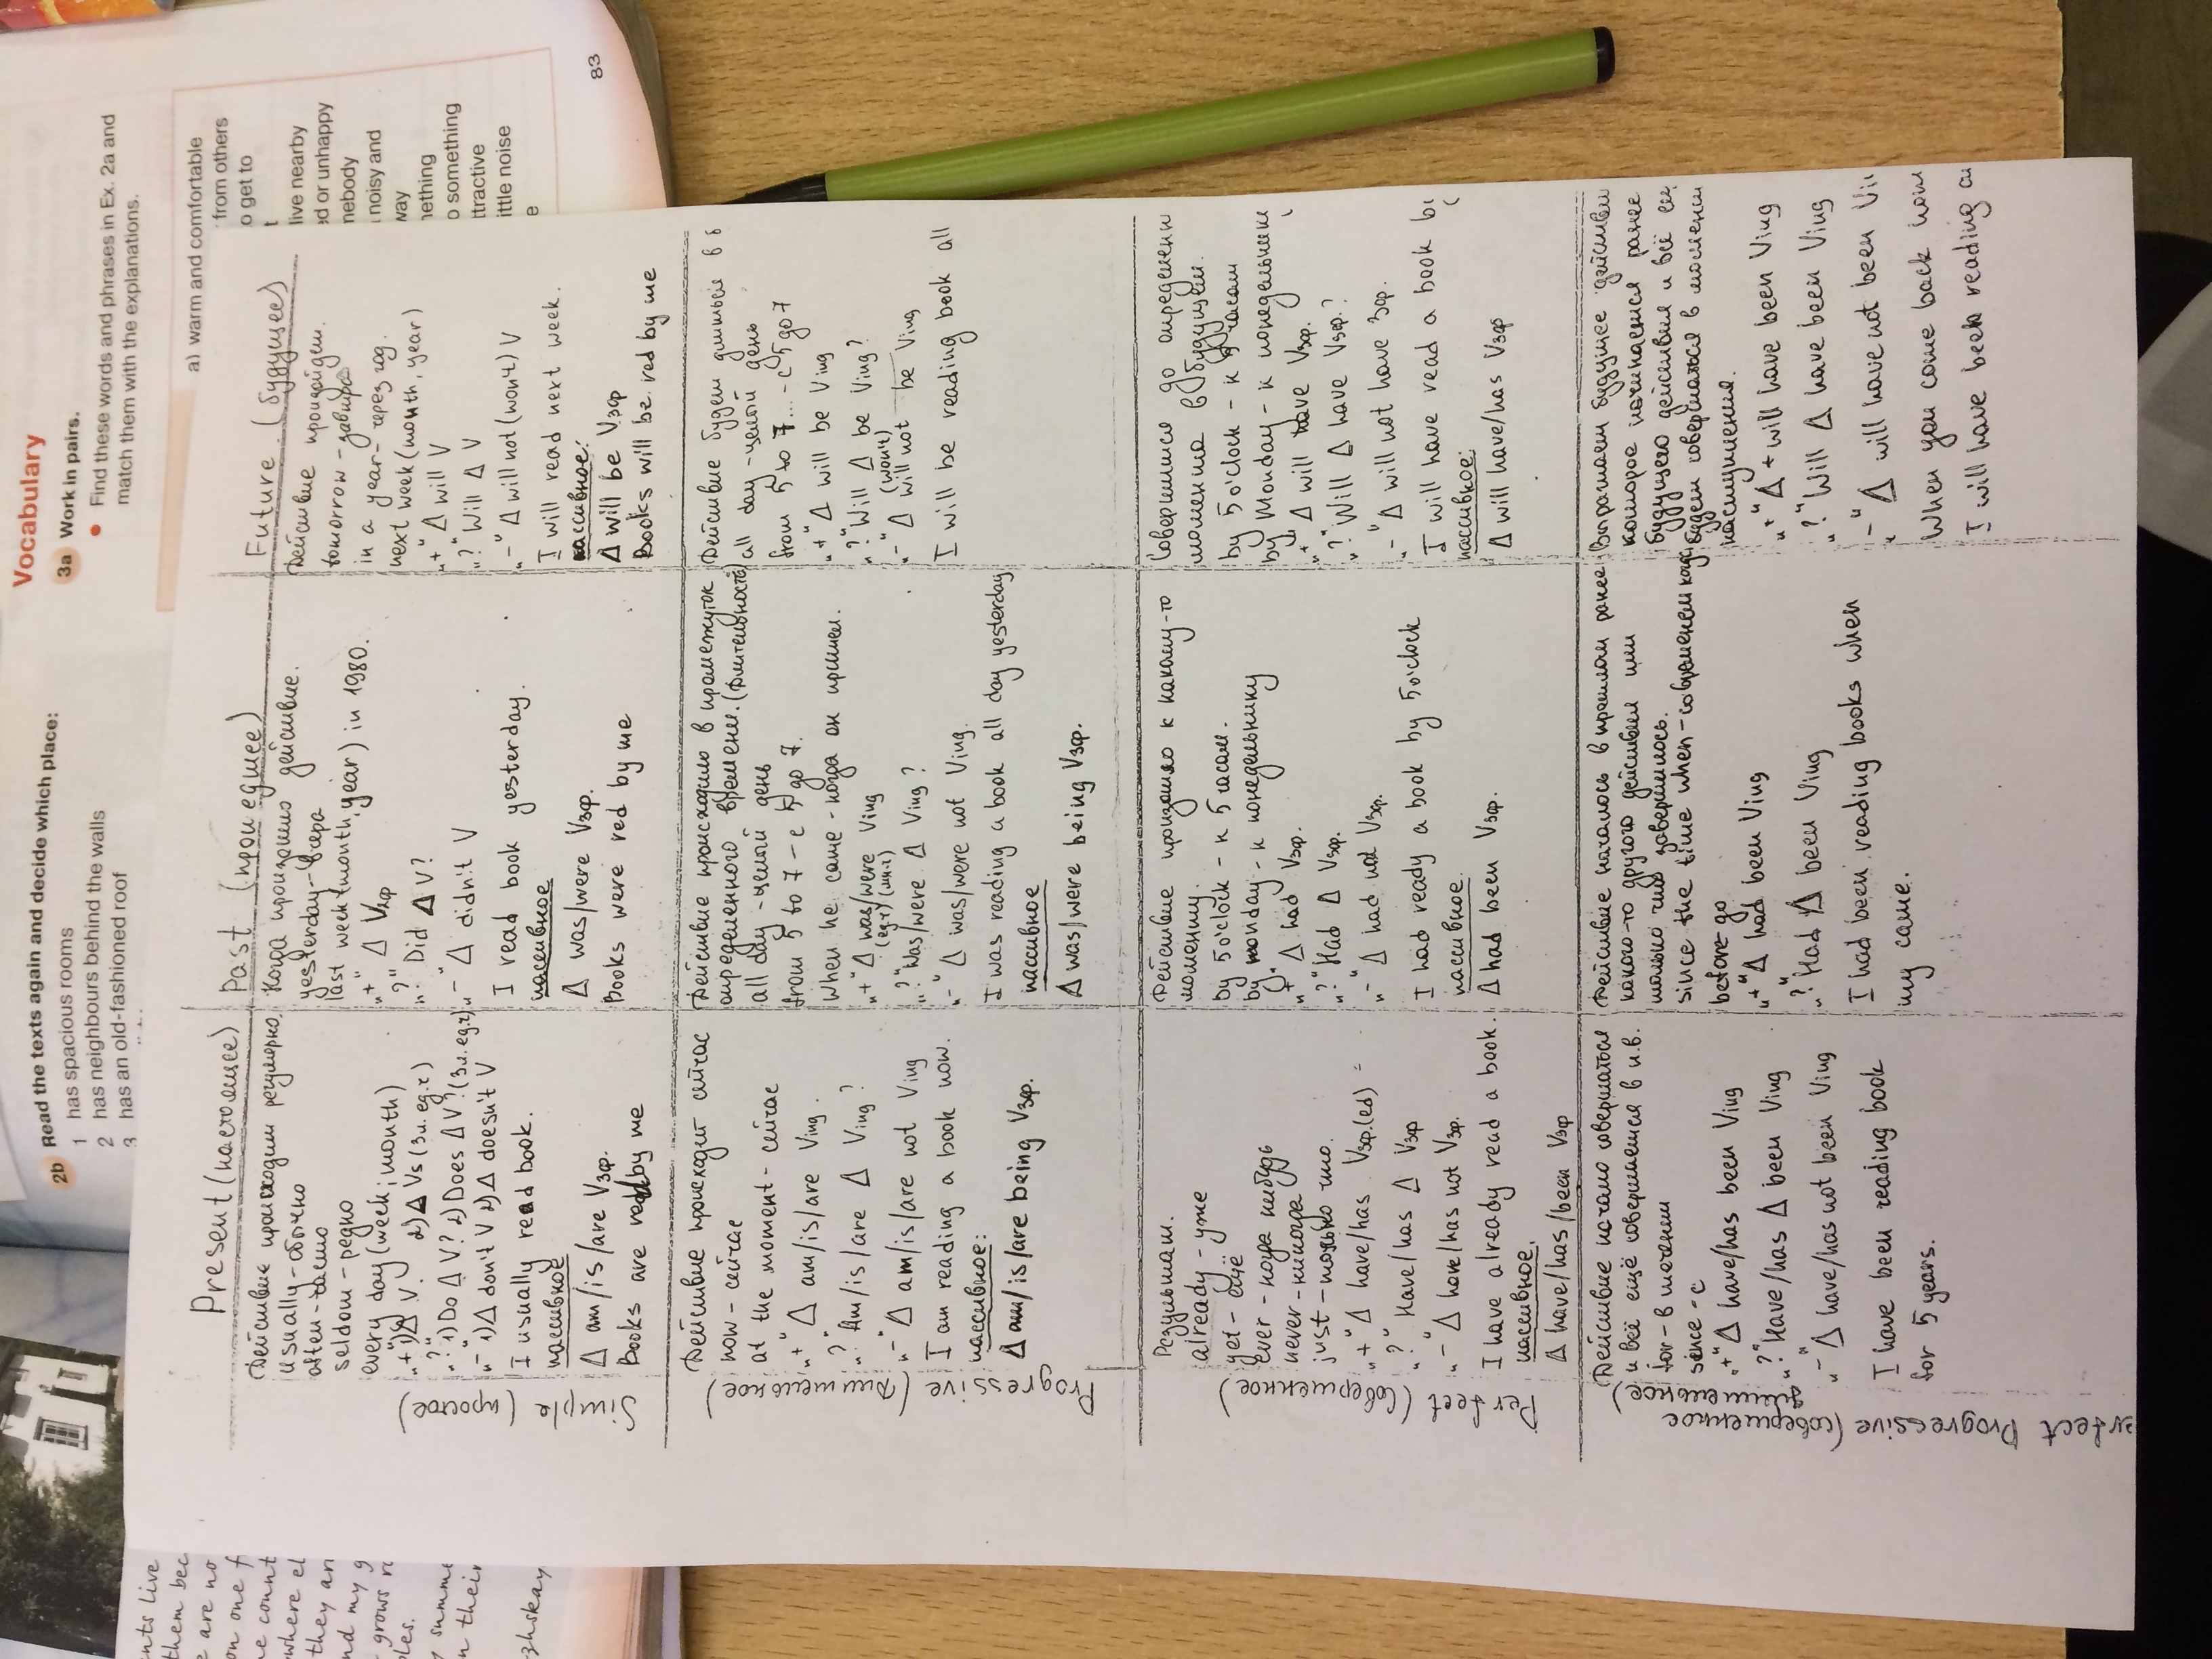 Vocabulary
3a Work in pairs.
Find these words and phrases in Ex. 2a and
match them with the explanations.
a) warm and comfortable
from others
o get to
live nearby
ed or unhappy
nebody
noisy and
way
nething
o something
ttractive
ittle noise
e
83
2b Read the texts again and decide which place:
1 has spacious rooms
2 has neighbours behind the walls
3 has an old-fashioned roof
Present (настоящее)
Past (прошедшее)
Future (будущее)
Simple (простое)
Действие происходит регулярно
usually - обычно
often - часто
seldom - редко
every day (week; month)
"+" 1) Δ V. 2) Δ Vs (3 л. ед.ч)
"?" 1) Do Δ V? 2) Does Δ V? (3 л. ед.ч)
"-" 1) Δ don't V 2) Δ doesn't V
I usually read book.
пассивное
Δ am/is/are V3ф.
Books are red by me
Когда произошло действие.
yesterday - вчера
last week (month, year) in 1980.
"+" Δ V2ф
"?" Did Δ V?
"-" Δ didn't V
I read book yesterday.
пассивное
Δ was/were V3ф.
Books were red by me
Действие произойдет.
tomorrow - завтра
in a year - через год.
next week (month, year)
"+" Δ will V
"?" Will Δ V
"-" Δ will not (won't) V
I will read next week.
пассивное:
Δ will be V3ф
Books will be red by me
Progressive (длительное)
Действие происходит сейчас
now - сейчас
at the moment - сейчас
"+" Δ am/is/are Ving.
"?" Am/is/are Δ Ving?
"-" Δ am/is/are not Ving
I am reading a book now.
пассивное:
Δ am/is/are being V3ф.
Действие происходило в промежуток
определенного времени. (длительность)
all day - целый день
from 5 to 7 - с 5 до 7.
When he came - когда он пришел.
"+" Δ was/were Ving
(ед.ч) (мн.ч)
"?" Was/were Δ Ving?
"-" Δ was/were not Ving.
I was reading a book all day yesterday
пассивное
Δ was/were being V3ф.
Действие будет длиться в б
all day - целый день
from 5 to 7... - с 5 до 7
"+" Δ will be Ving
"?" Will Δ be Ving?
"-" Δ will not be Ving
(won't)
I will be reading book all
Perfect (совершенное)
Результат.
already - уже
yet - ещё
ever - когда нибудь
never - никогда
just - только что.
"+" Δ have/has V3ф.(ed) =
"?" Have/has Δ V3ф
"-" Δ have/has not V3ф.
I have already read a book.
пассивное.
Δ have/has/been V3ф
Действие произошло к какому-то
моменту.
by 5 o'clock - к 5 часам.
by monday - к понедельнику
"+" Δ had V3ф.
"?" Had Δ V3ф.
"-" Δ had not V3ф.
I had ready a book by 5 o'clock
пассивное.
Δ had been V3ф.
Совершится до определенн
момента в будущем.
by 5 o'clock - к 5 часам
by Monday - к понедельник
"+" Δ will have V3ф.
"?" Will Δ have V3ф.?
"-" Δ will not have 3ф.
I will have read a book
пассивное:
Δ will have/has V3ф
erfect Progressive (совершенное
длительное)
Действие начало совершаться
и всё ещё совершается в н.в.
for - в течении
sence - с
"+" Δ have/has been Ving
"?" Have/has Δ been Ving
"-" Δ have/has not been Ving
I have been reading book
for 5 years.
Действие началось в прошлом ранее
какого-то другого действия или
только что завершилось.
since the time when - со времени когда
before - до
"+" Δ had been Ving
"?" Had Δ been Ving
I had been reading books when
my came.
Выражает будущее действие
которое начинается ранее
будущего действия и всё ещ
будет совершаться в момент
наступления.
"+" Δ + will have been Ving
"?" Will Δ have been Ving
"-" Δ will have not been Vi
When you come back hom
I will have been reading
ents live
them bec
e are no
on one f
ne count
where el
they ar
nd my g
grows
ples.
summe
n their
zhskay